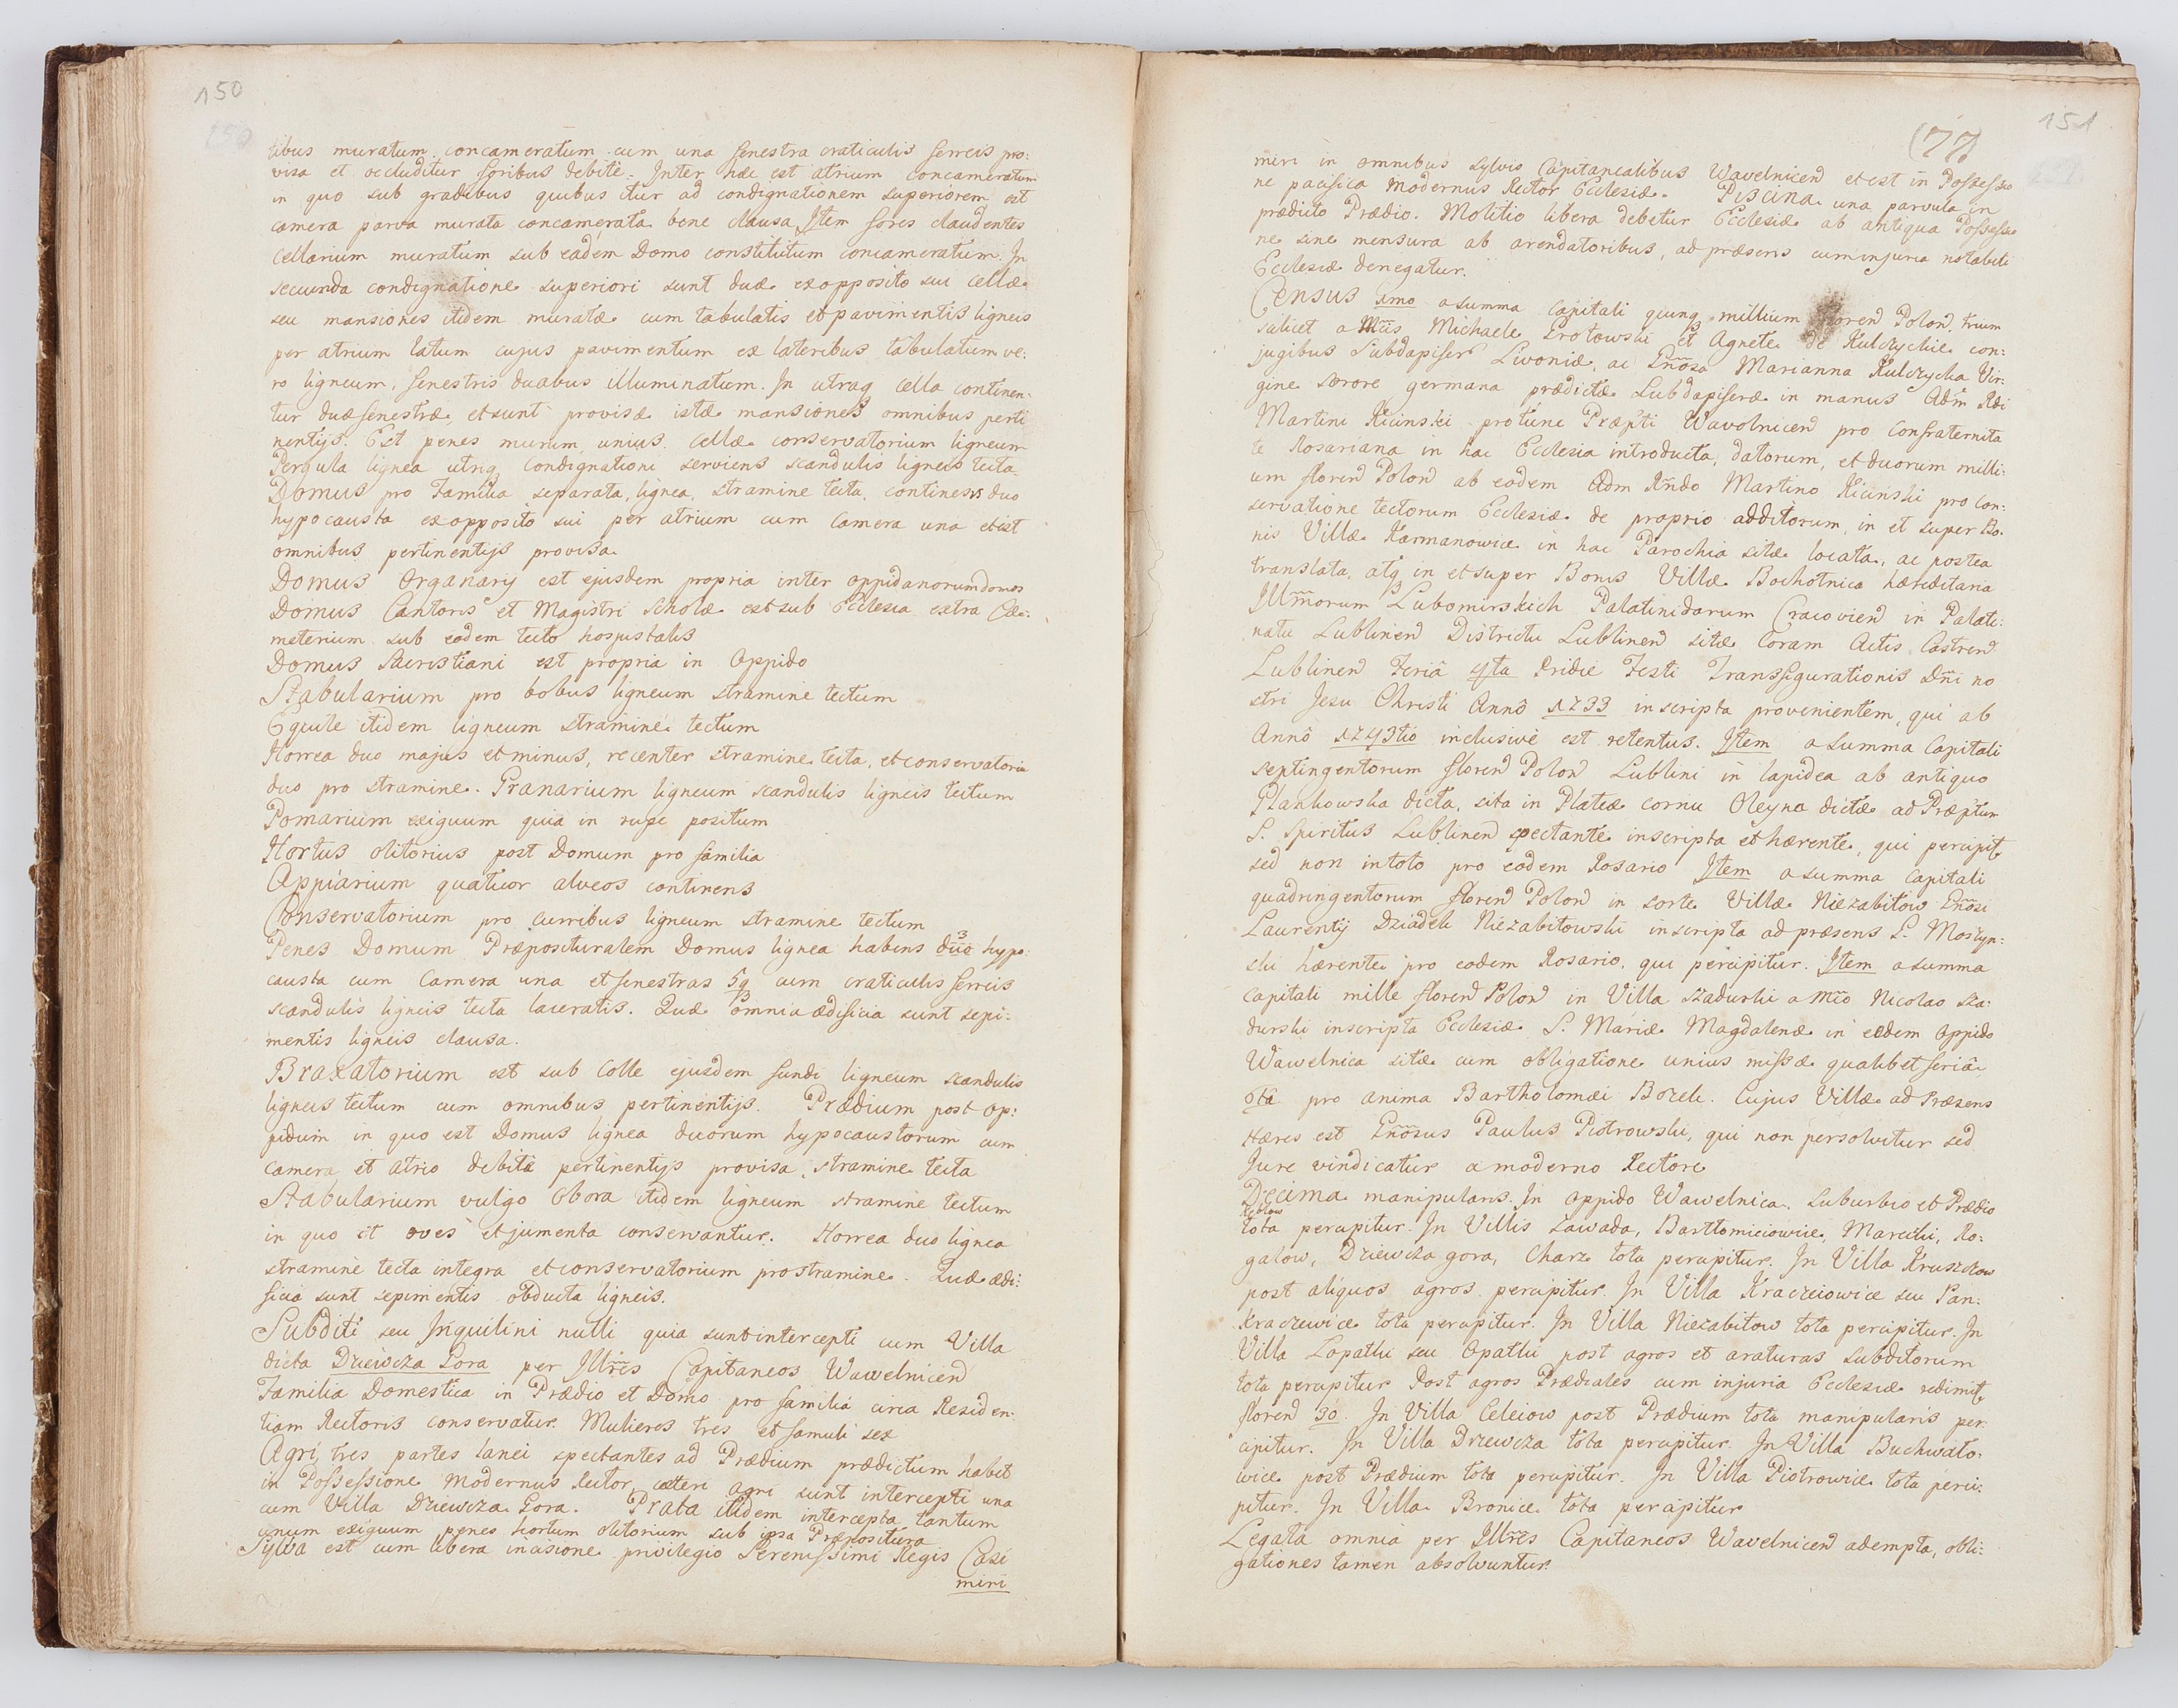 150
tibus muratum concameratum cum una fenestra craticulis ferreis pro:
visa et occluditur foribus debite. Inter hæc est atrium concameratum
in quo sub gradibus quibus itur ad condignationem superiorem est
camera parva murata concamerata bene clausa, Item fores claudentes
cellarium muratum sub eadem Domo constitutum concameratum. In
secunda condignatione superiori sunt duæ ex opposito sui cellæ
seu mansiones itidem muratæ cum tabulatis et pavimentis ligneis
per atrium latum cujus pavimentum ex lateribus tabulatum ve:
ro ligneum, fenestris duabus illuminatum. In utraq cella continen:
tur duæ fenestræ, et sunt provisæ istæ mansiones omnibus perti
nentijs. Est penes murum unius cellæ conservatorium ligneum
Pergula lignea utriq condignationi serviens scandulis ligneis tecta
Domus pro Familia separata, lignea, stramine tecta, continens duo
hypocausta ex opposito sui per atrium cum Camera una et est
omnibus pertinentijs provisa
Domus Organarij est ejusdem propria inter oppidanorum domos
Domus Cantoris et Magistri scholæ est sub Ecclesia extra Cæ:
meterium sub eodem tecto hospitalis
Domus Sacristiani est propria in Oppido
Stabularium pro bobus ligneum stramine tectum
Equile itidem ligneum stramine tectum
Horrea duo majus et minus, recenter stramine tecta, et conservatoria
duo pro stramine. Granarium ligneum scandulis ligneis tectum
Pomarium exiguum quia in rupe positum
Hortus olitorius post Domum pro familia
Appiarium quatuor alveos continens
Conservatorium pro curribus ligneum stramine tectum
Penes Domum Præposituralem Domus lignea habens duo 3 hypo:
causta cum Camera una et fenestras 5q cum craticulis ferreis
scandulis ligneis tecta laceratis. Quæ omnia ædificia sunt sepi:
mentis ligneis clausa.
Braxatorium est sub Colle ejusdem fundi ligneum scandulis
ligneis tectum cum omnibus pertinentijs. Prædium post op:
pidum in quo est Domus lignea duorum hypocaustorum cum
camera et atrio debitè pertinentijs provisa, stramine tecta
Stabularium vulgo Obora itidem ligneum stramine tectum
in quo et oves et jumenta conservantur. Horrea duo lignea
stramine tecta integra et conservatorium pro stramine. Quæ ædi:
ficia sunt sepimentis obducta ligneis.
Subditi seu Inquilini nulli quia sunt intercepti cum Villa
dicta Dziewcza Gora per Illr̃es Capitaneos Wawelnicen̄
Familia Domestica in Prædio et Domo pro familia circa Residen:
tiam Rectoris conservatur. Mulieres tres et famuli sex
Agri, tres partes lanei spectantes ad Prædium prædictum habet
in Possessione Modernus Rector, cæteri agri sunt intercepti una
cum Villa Dziewcza Gora. Prata itidem intercepta tantum
unum exiguum penes hortum olitorium sub ipsa Præpositura
Sylva est cum libera incisione privilegio Serenissimi Regis Casi
miri
151
(77)
miri in omnibus sylvis Capitanealibus Wawelnicen̄ et est in Possessio
ne pacifica Modernus Rector Ecclesiæ. Piscina una parvula in
prædicto Prædio. Molitio libera debetur Ecclesiæ ab antiqua Possessio
ne sine mensura ab arendatoribus, ad præsens cum injuria notabili
Ecclesiæ denegatur.
Census 1mo a summa capitali quinq millium floren̄ Polon̄, trium
scilicet a Mcis Michaele Grotowski et Agnete de Kulczyckie con:
jugibus Subdapifer Livoniæ, ac Gñosa Marianna Kulczycka Vir:
gine sorore germana prædictæ Subdapiferæ in manus Adm̃ Rdi
Martini Kicinski protunc Præpti Wavolnicen̄ pro confraternita
te Rosariana in hac Ecclesia introducta, datorum, et duorum milli:
um floren̄ Polon̄ ab eodem Adm Rñdo Martino Kicinski pro con:
servatione tectorum Ecclesiæ de proprio additorum, in et super Bo:
nis Villæ Karmanowice in hac Parochia sitæ locata, ac postea
translata, atq in et super Bonis Villæ Bochotnica hæreditaria
Illm̃orum Lubomirskich Palatinidarum Cracovien̄ in Palati:
natu Lublinen̄ Districtu Lublinen̄ sitæ Coram Actis Castren̄
Lublinen̄ Feriâ 4ta Pridie Festi Transfigurationis Dñi no
stri Jesu Christi Annô 1733 inscripta provenientem, qui ab
Annô 1743tio inclusivè est retentus. Item a summa Capitali
septingentorum floren̄ Polon̄ Lublini in lapidea ab antiquo
Plankowska dicta, sita in Plateæ cornu Oleyna dictæ ad Præptum
S. Spiritus Lublinen̄ spectante inscripta et hærente, qui percipit
sed non in toto pro eodem Rosario Item a summa capitali
quadringentorum floren̄ Polon̄ in sorte Villæ Niezabitow Gñosi
Laurentij Dziadek Niezabitowski inscripta ad præsens G. Moszyn:
ski hærente pro eodem Rosario, qui percipitur. Item a summa
capitali mille floren̄ Polon̄ in Villa Szadurki a Mco Nicolao Sza:
durski inscripta Ecclesiæ S. Mariæ Magdalenæ in eodem Oppido
Wawelnica sitæ cum obligatione unius missæ qualibet feriâ
6ta pro anima Bartholomæi Bozek. Cujus Villæ ad Præsens
Hæres est Gñosus Paulus Piotrowski, qui non persolvitur sed
Jure vindicatur a moderno Rectore
Decima manipularis. In Oppido Wawelnica, Suburbio et Prædio
tota percipitur. In Villis Zawada, Bartłomieiowice, Marcihi, Ro:
galow, Dziewcza gora, Charz tota percipitur. In Villa Kruszkow
post aliquos agros percipitur. In Villa Kraczeiowice seu Pan:
Kraczewice tota percipitur. In Villa Niezabitow tota percipitur. In
Villa Łopatki seu Opatki post agros et araturas Subditorum
tota percipitur Post agros Prædiales cum injuria Ecclesiæ redimit
floren̄ 30. In Villa Celeiow post Prædium tota manipularis per:
cipitur. In Villa Drzewcza tota percipitur. In Villa Buchwało:
wice post Prædium tota percipitur. In Villa Piotrowice tota perci:
pitur. In Villa Bronice tota percipitur
Legata omnia per Illr̃es Capitaneos Wawelnicen̄ adempta, obli:
gationes tamen absolvuntur.